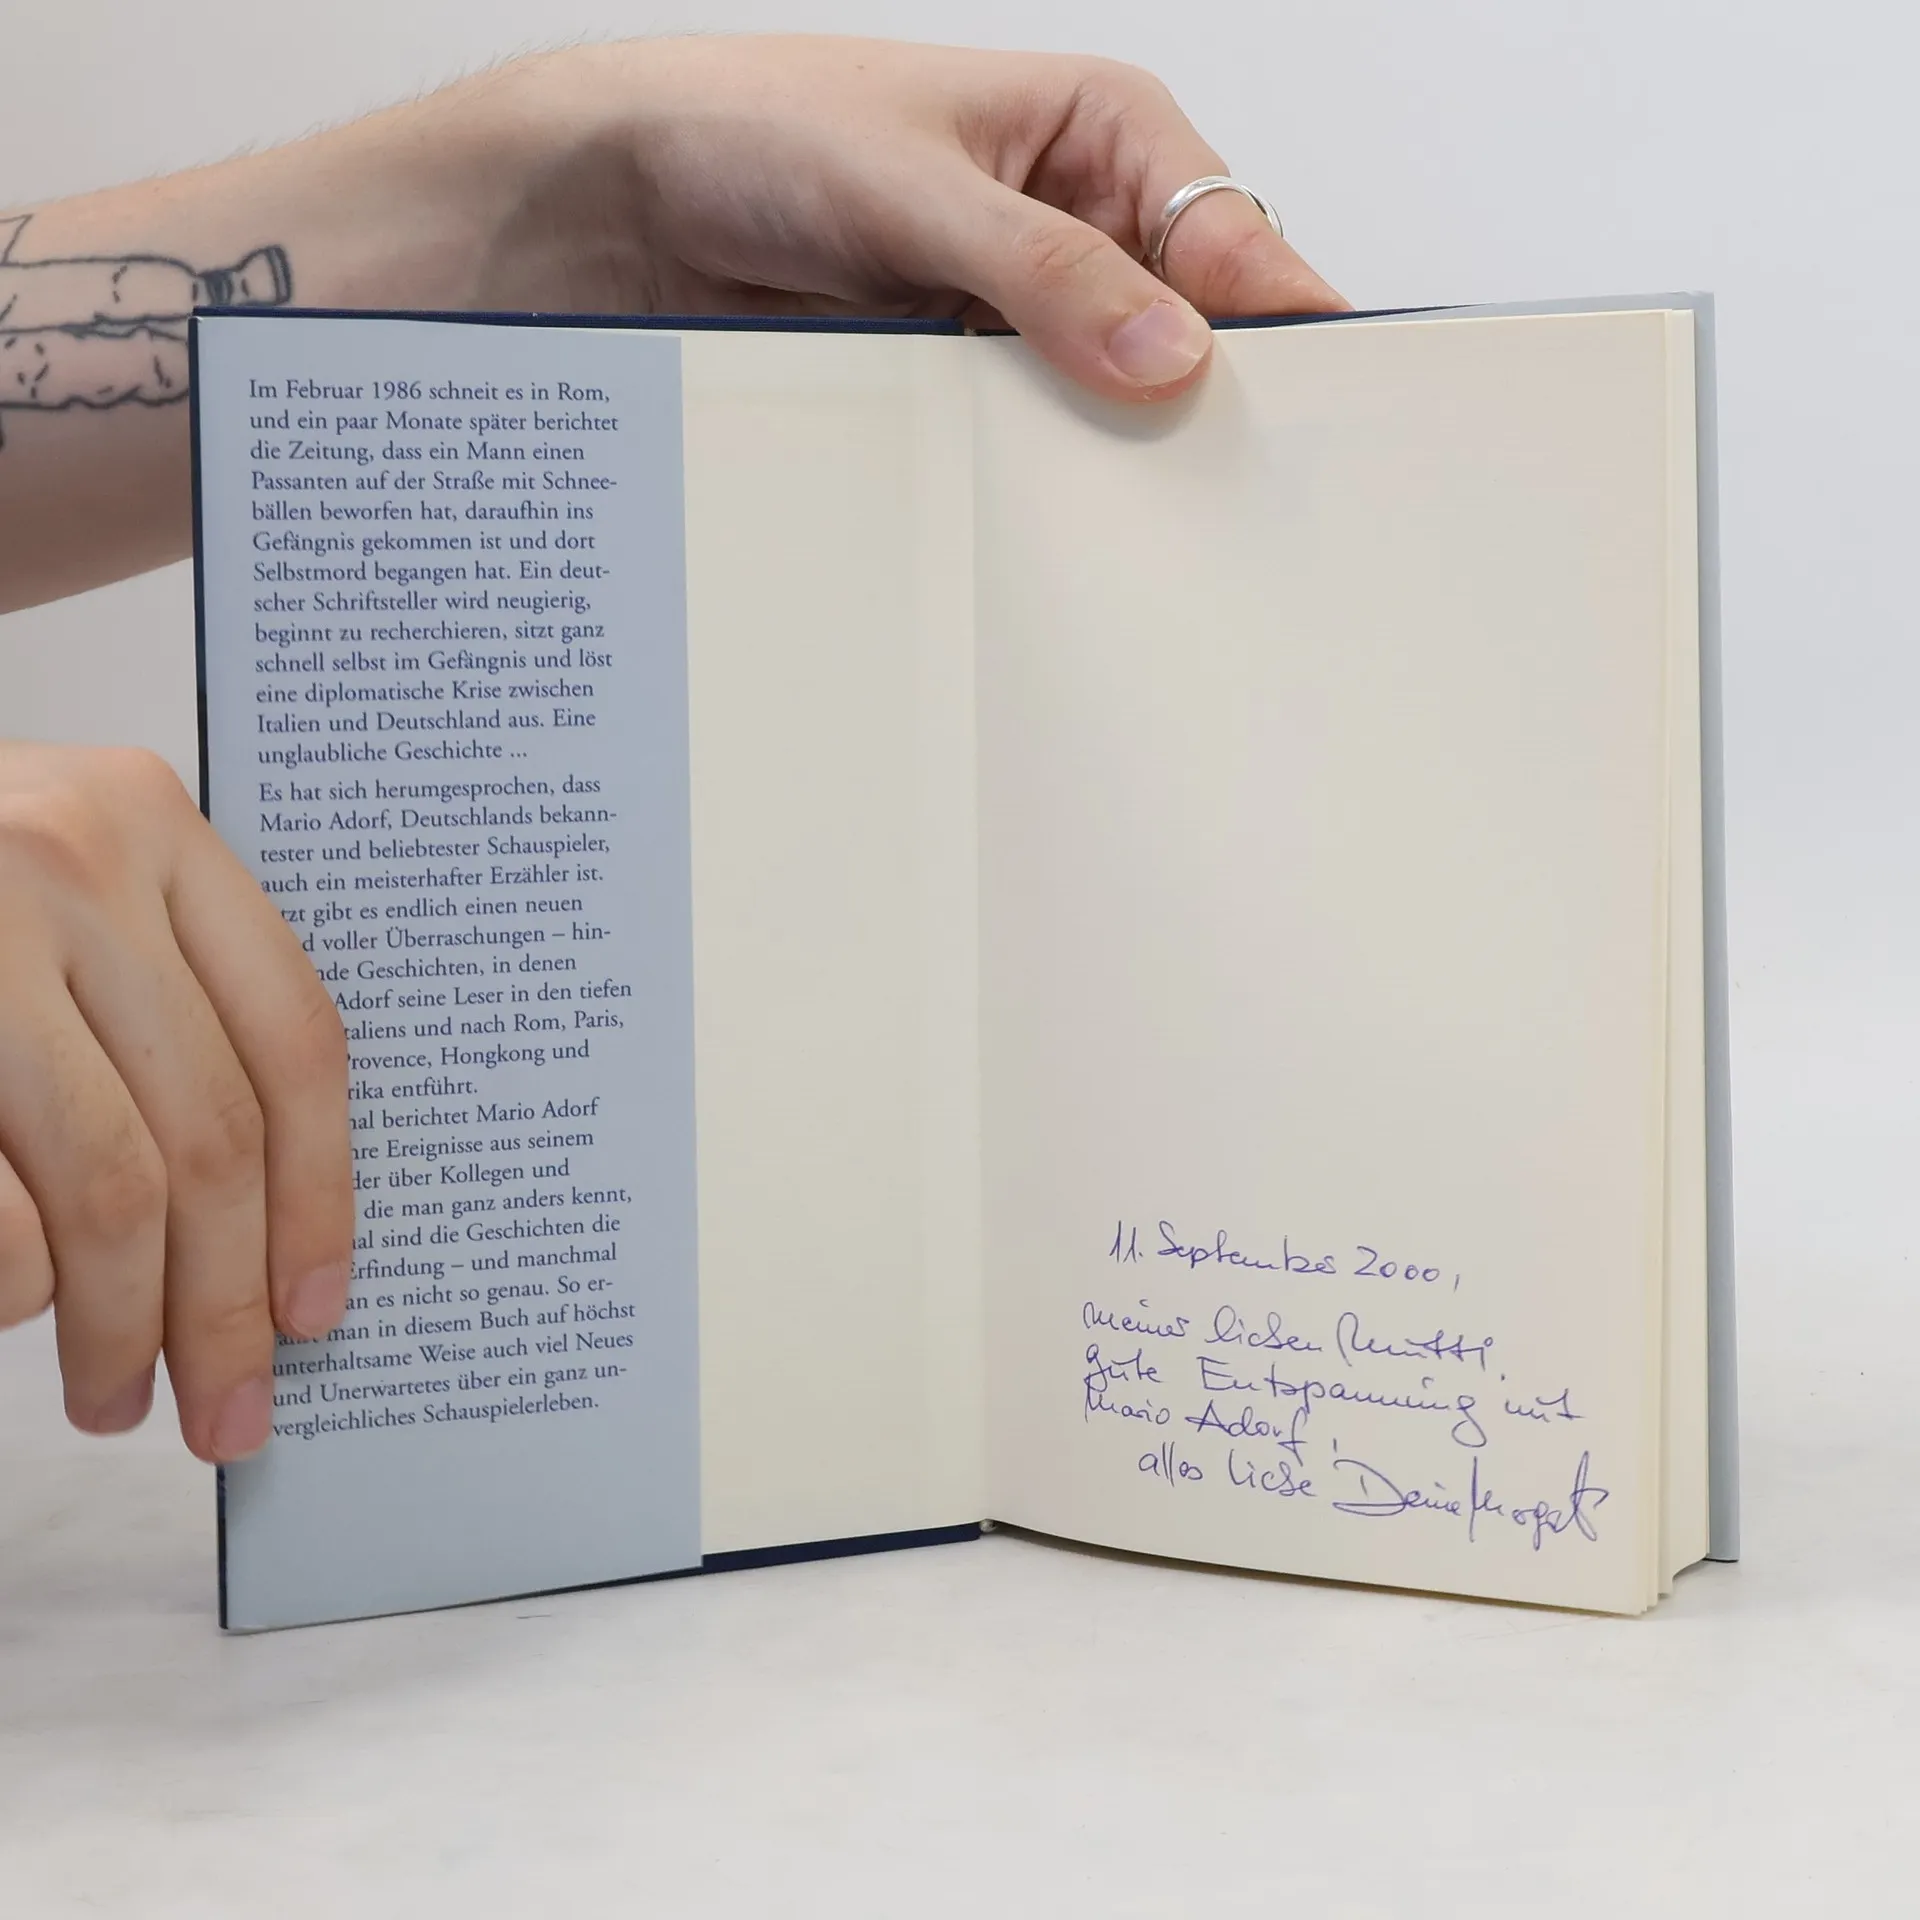 Im Februar 1986 schneit es in Rom,
und ein paar Monate später berichtet
die Zeitung, dass ein Mann einen
Passanten auf der Straße mit Schnee-
bällen beworfen hat, daraufhin ins
Gefängnis gekommen ist und dort
Selbstmord begangen hat. Ein deut-
scher Schriftsteller wird neugierig,
beginnt zu recherchieren, sitzt ganz
schnell selbst im Gefängnis und löst
eine diplomatische Krise zwischen
Italien und Deutschland aus. Eine
unglaubliche Geschichte ...
Es hat sich herumgesprochen, dass
Mario Adorf, Deutschlands bekann-
tester und beliebtester Schauspieler,
auch ein meisterhafter Erzähler ist.
tzt gibt es endlich einen neuen
d voller Überraschungen – hin-
nde Geschichten, in denen
Adorf seine Leser in den tiefen
taliens und nach Rom, Paris,
Provence, Hongkong und
rika entführt.
al berichtet Mario Adorf
hre Ereignisse aus seinem
der über Kollegen und
die man ganz anders kennt,
al sind die Geschichten die
Erfindung – und manchmal
an es nicht so genau. So er-
man in diesem Buch auf höchst
unterhaltsame Weise auch viel Neues
und Unerwartetes über ein ganz un-
vergleichliches Schauspielerleben.
11. September 2000,
meiner lieben Mutti,
gute Entspannung mit
Mario Adorf,
alles Liebe Deine